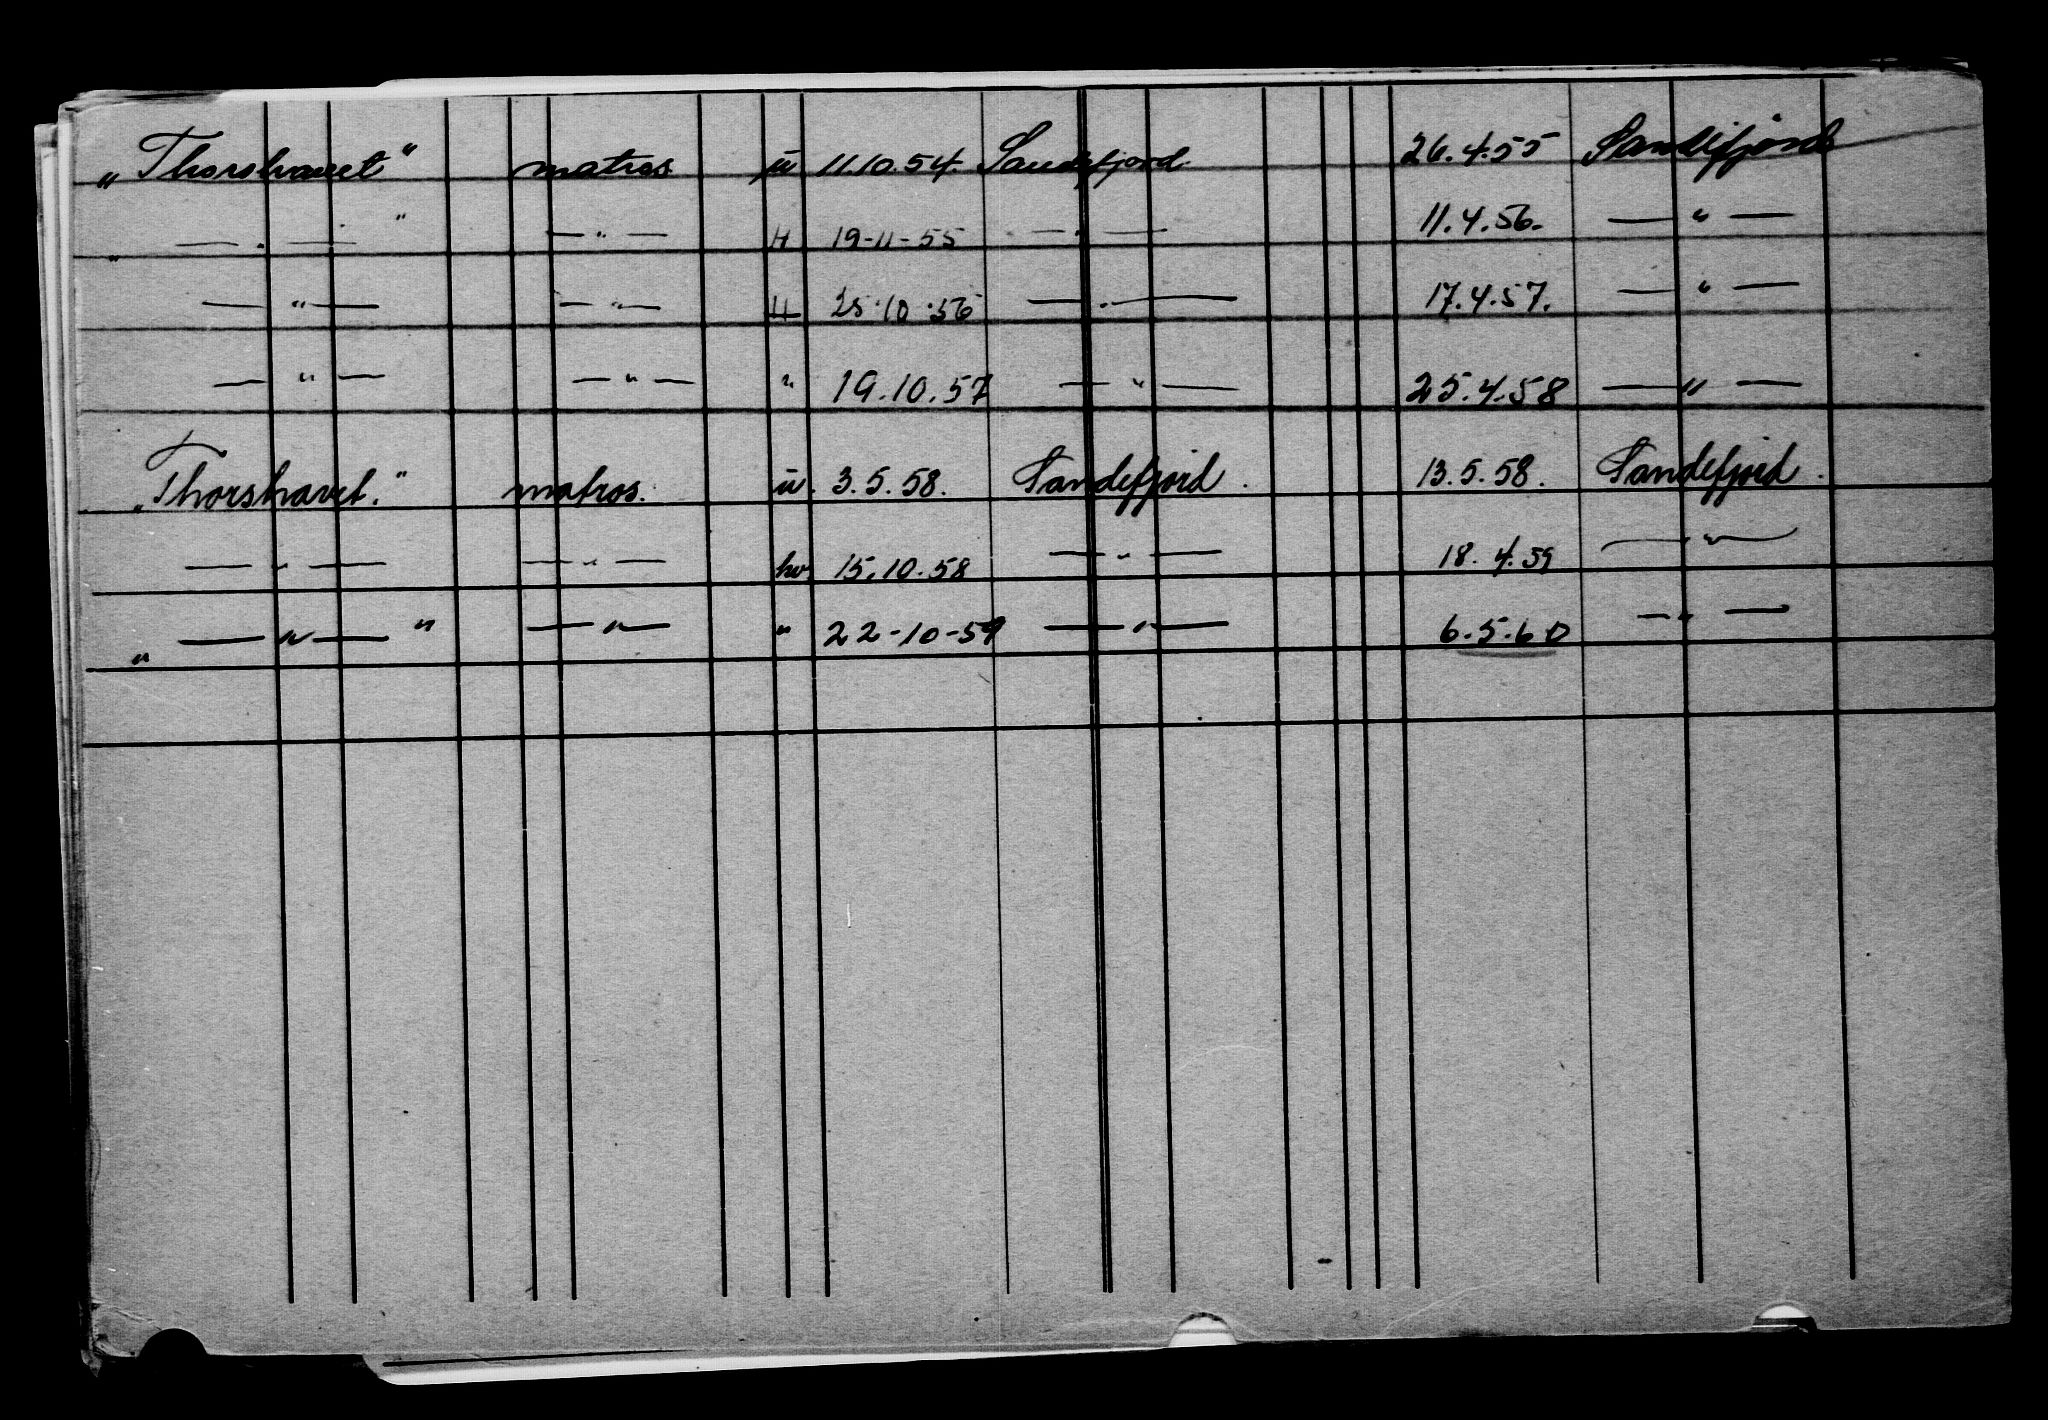 „Thorshavet“ matros u 11.10.54. Sandefjord 26.4.55 Sandefjord
„ — „ — “ — „ — H 19-11-55 — „ — 11.4.56. — „ —
— „ — — „ — H 25.10.56 — „ — 17.4.57. — „ —
— „ — — „ — „ 19.10.57 — „ — 25.4.58 — „ —
„Thorshavet.“ matros. u. 3.5.58. Sandefjord. 13.5.58. Sandefjord.
— „ — — „ — hv. 15.10.58 — „ — 18.4.59 — „ —
„ — „ — “ — „ — „ 22-10-59 — „ — 6.5.60 — „ —